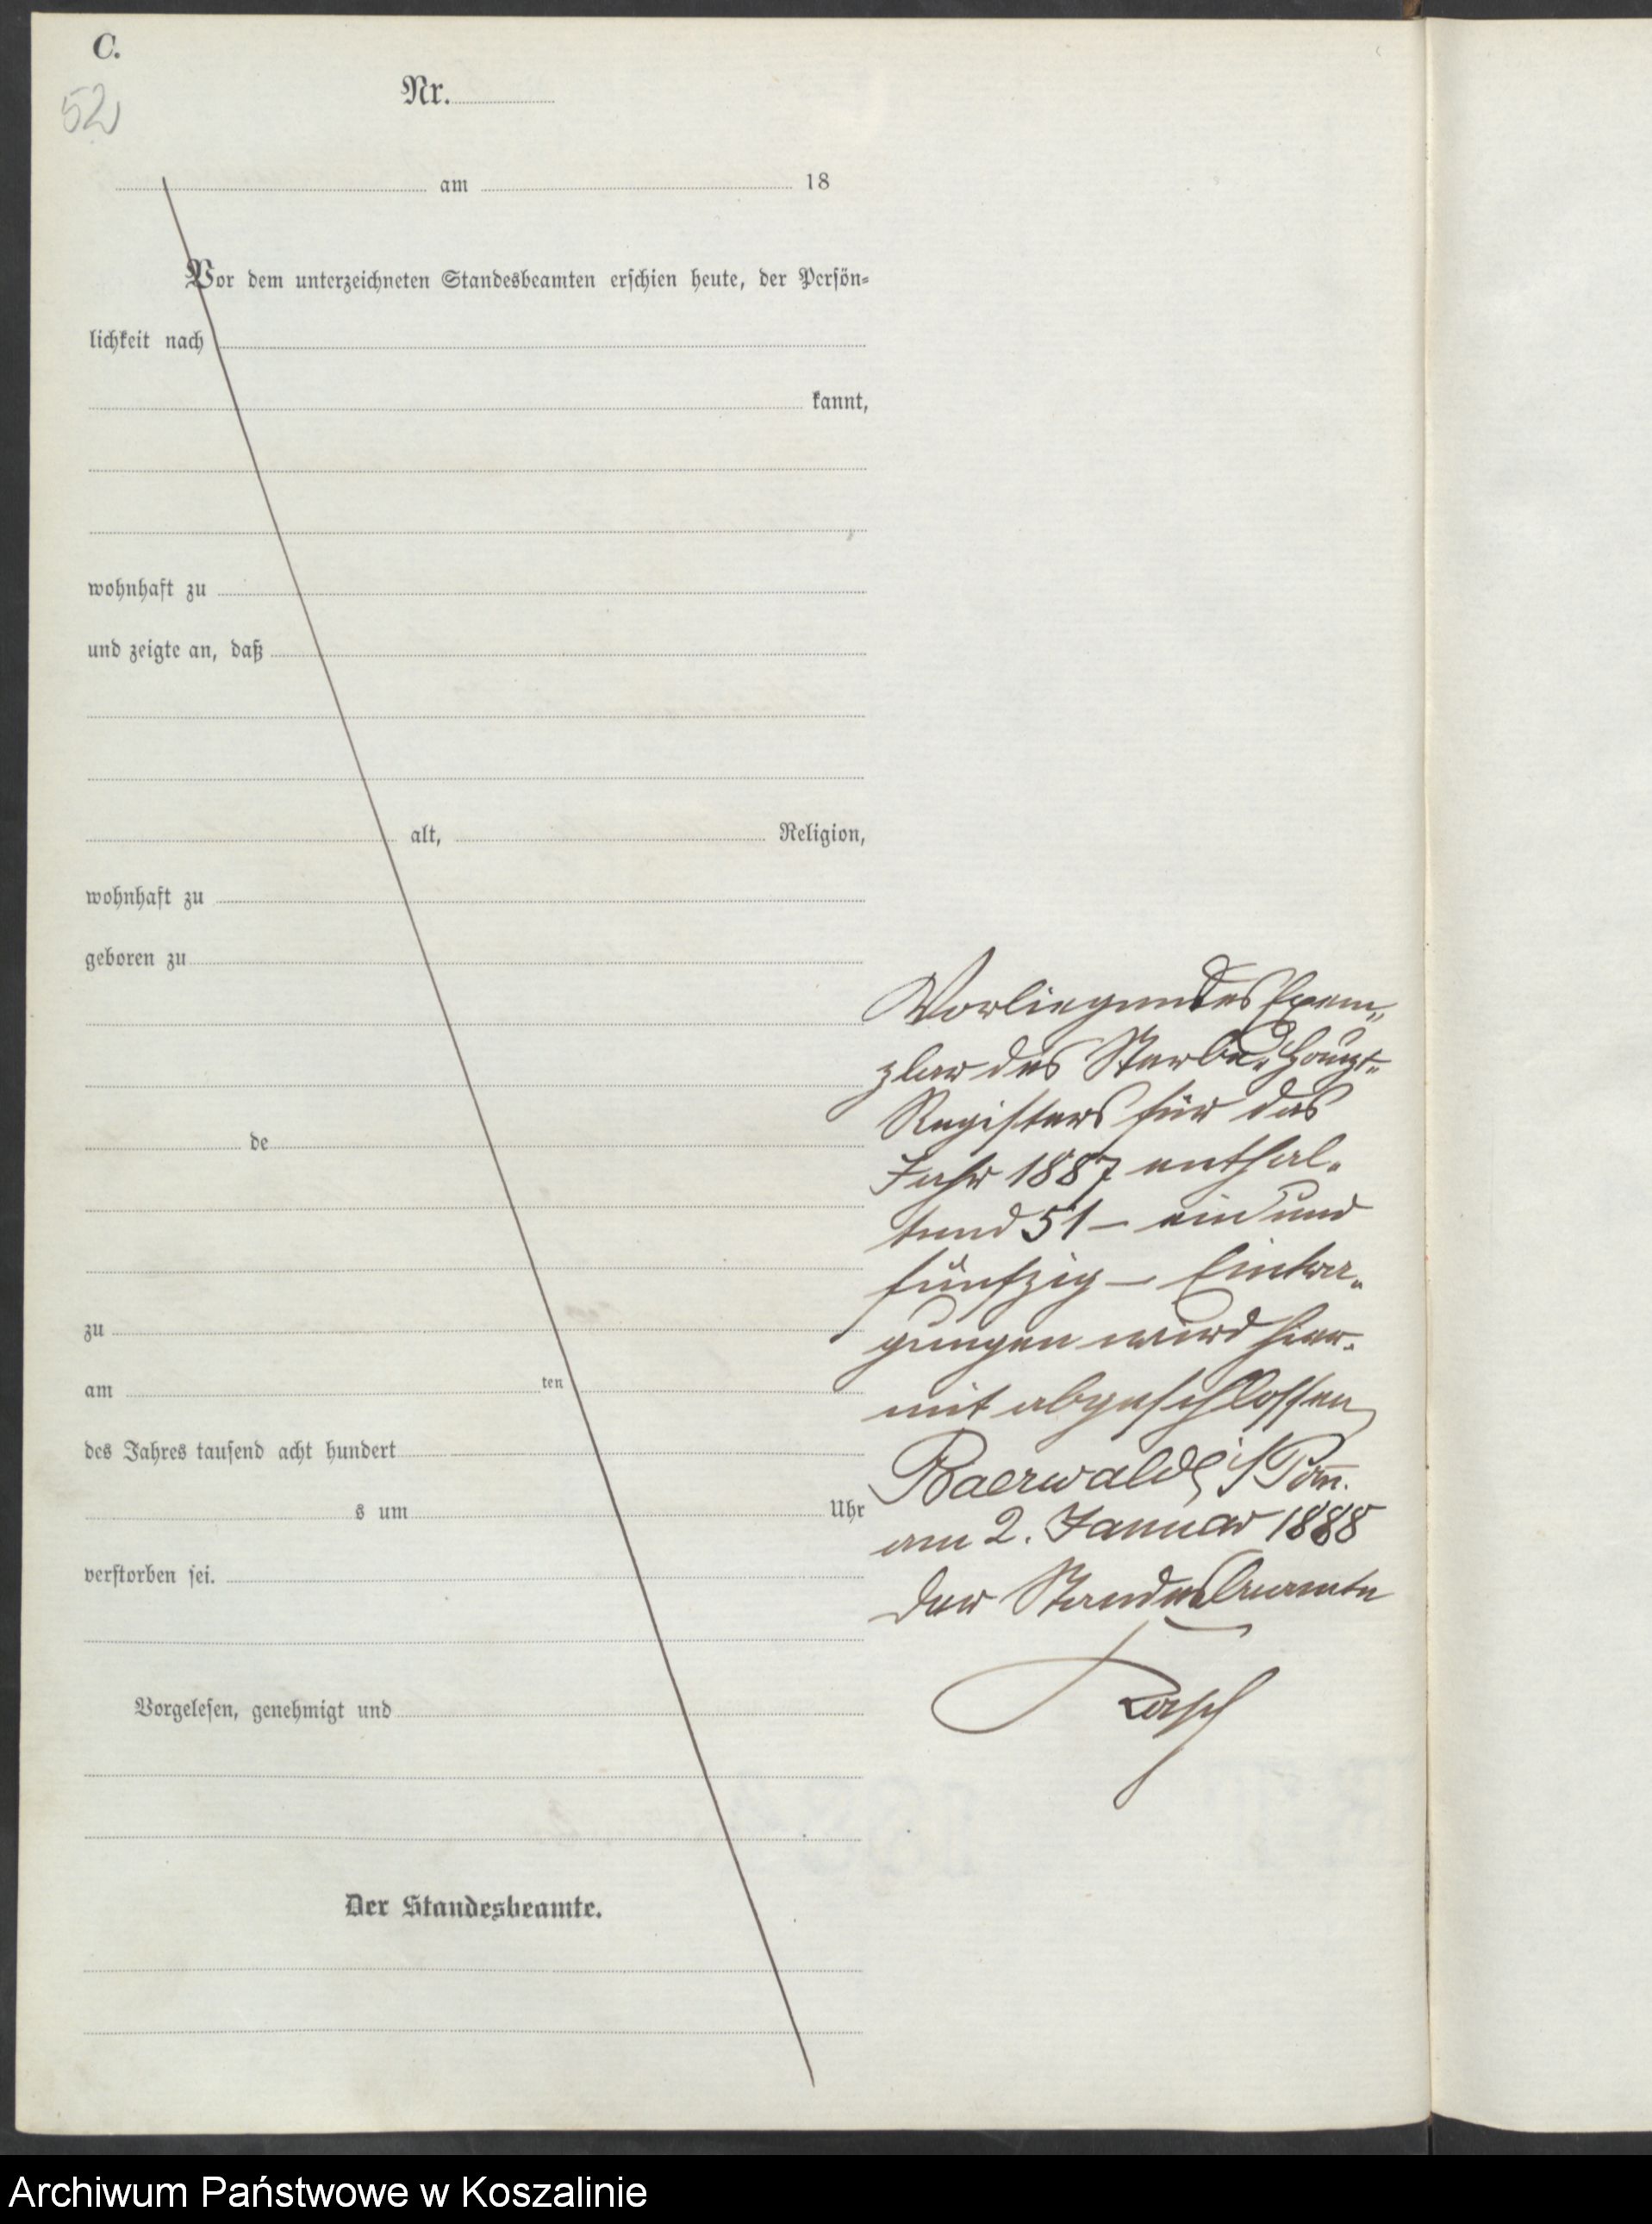 C.
52
Nr.
am 18
Vor dem unterzeichneten Standesbeamten erschien heute, der Persön=
lichkeit nach
kannt,
wohnhaft zu
und zeigte an, daß
alt, Religion,
wohnhaft zu
geboren zu
de
zu
am ten
des Jahres tausend acht hundert
s um Uhr
verstorben sei.
Vorgelesen, genehmigt und
Der Standesbeamte.
Vorliegendes Exem„
plar des Sterbe„Haupt„
Registers für das
Jahr 1887 enthal„
tend 51 — ein und
fünfzig — Eintra„
gungen wird hier„
mit abgeschlossen
Baerwalde i/Pom.
am 2. Januar 1888
Der Standesbeamte
Archiwum Państwowe w Koszalinie